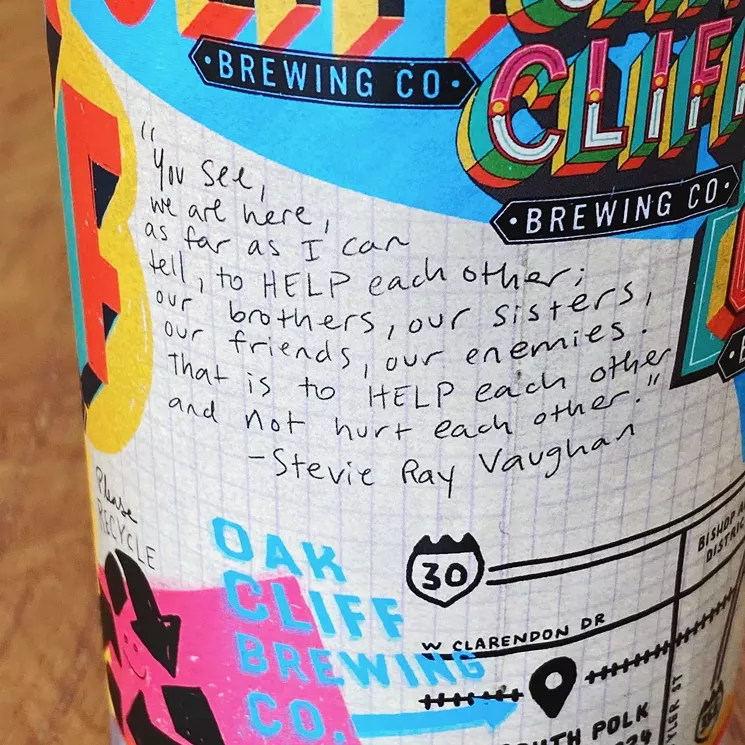 CLIFF
· BREWING CO ·
· BREWING CO ·
"You see,
we are here,
as far as I can
tell, to HELP each other;
our brothers, our sisters,
our friends, our enemies.
That is to HELP each other
and not hurt each other."
-Stevie Ray Vaughan
Please
RECYCLE
OAK
CLIFF
BREWING
CO.
30
BISHOP
W CLARENDON DR
POLK